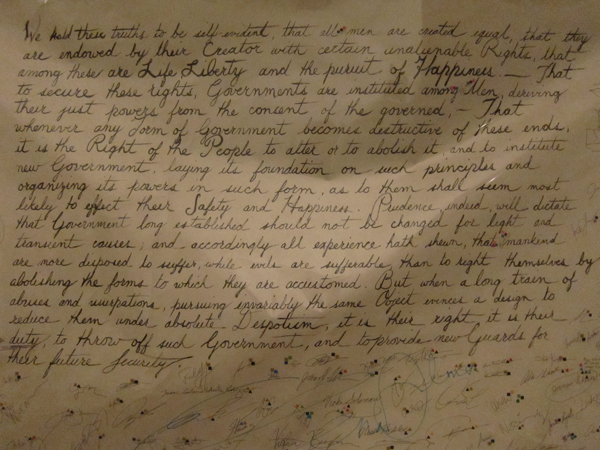 We hold these truths to be self-evident, that all men are created equal, that they
are endowed by their Creator with certain unalienable Rights, that
among these are Life Liberty and the pursuit of Happiness. — That
to secure these rights, Governments are instituted among Men, deriving
their just powers from the consent of the governed, – That
whenever any form of Government becomes destructive of these ends,
it is the Right of the People to alter or to abolish it, and to institute
new Government, laying its foundation on such principles and
organizing its powers in such form, as to them shall seem most
likely to effect their Safety and Happiness. Prudence, indeed, will dictate
that Government long established should not be changed for light and
transient causes; and accordingly all experience hath shewn, that mankind
are more disposed to suffer, while evils are sufferable, than to right themselves by
abolishing the forms to which they are accustomed. But when a long train of
abuses and usurpations, pursuing invariably the same Object evinces a design to
reduce them under absolute Despotism, it is their right, it is their
duty, to throw off such Government, and to provide new Guards for
their future Security.